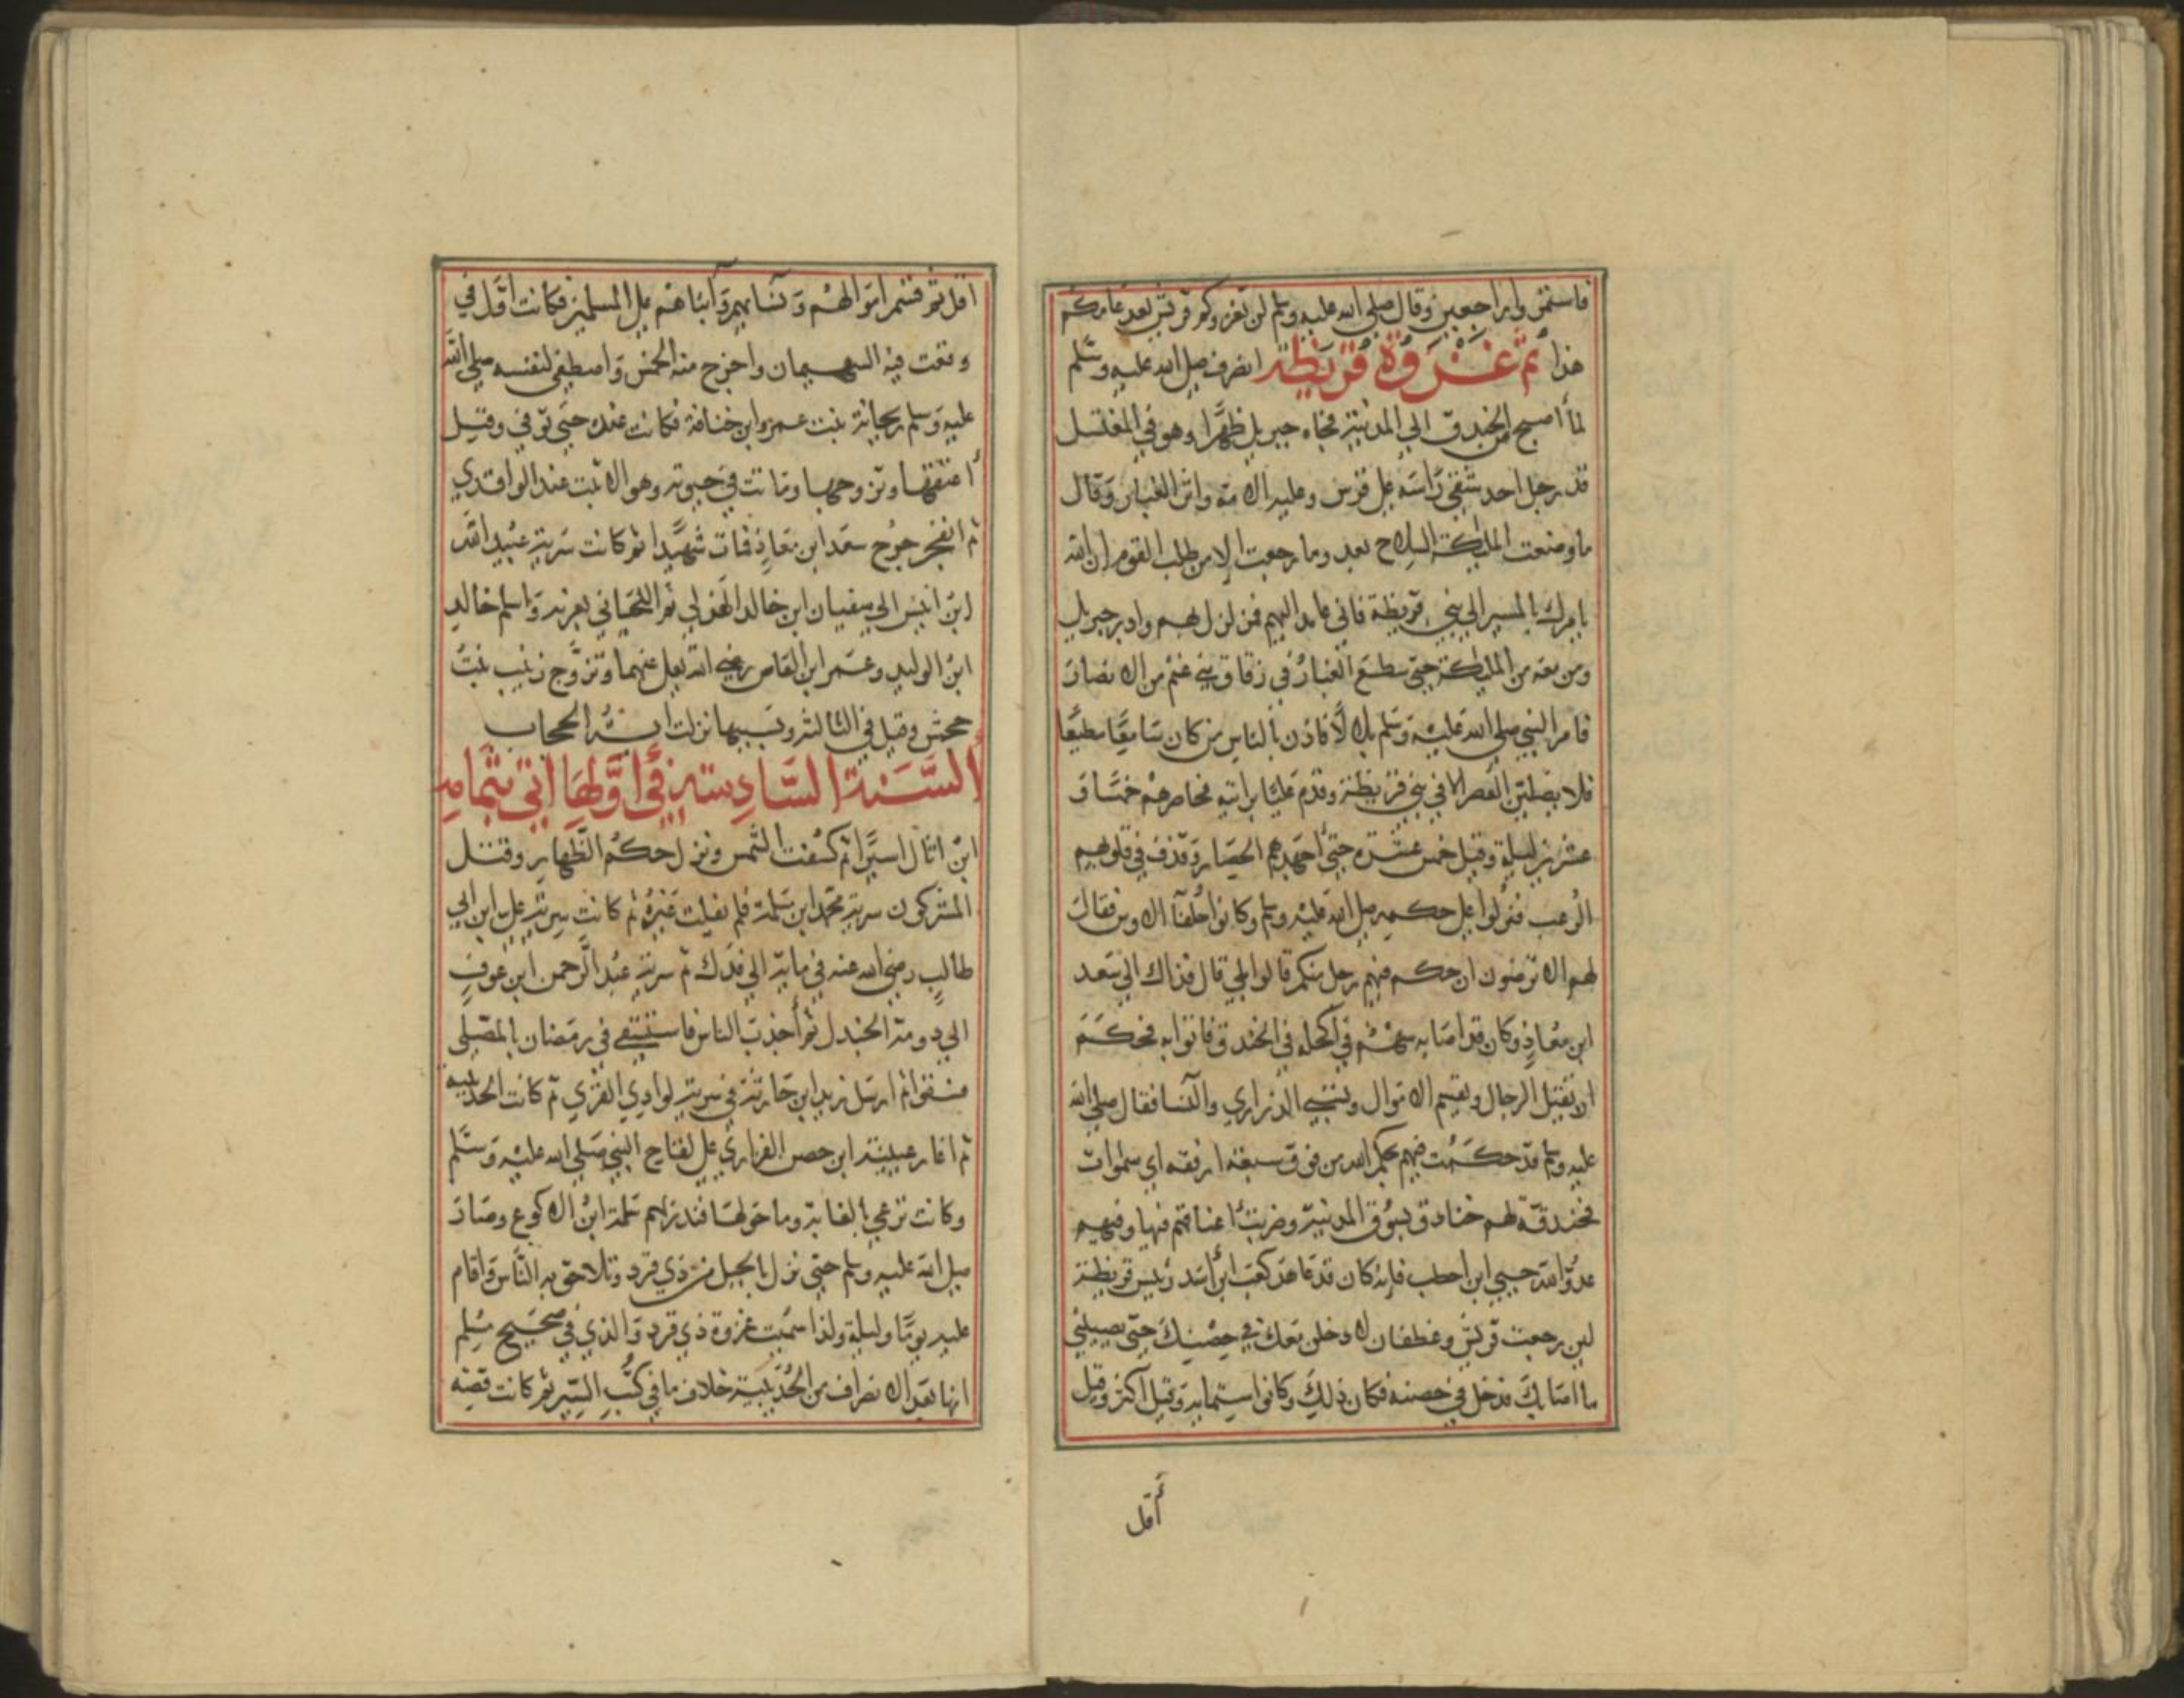 فاستمروا راجعين وقال صلى الله عليه وسلم لن تغزوكم قريش بعد عامكم
هذا ثم غزوة قريظة انصرف صلى الله عليه وسلم
لما اصبح من الخندق الى المدينة فجاه جبريل ظهرا وهو في المغتسل
قد رجل احد شقي راسه على فرس وعليه الامة واثر الغبار وقال
ما وضعت الملئكة السلاح بعد وما رجعت الا من طلب القوم ان الله
يامرك بالمسير الى بني قريظة فاني عامد اليهم فمزلزل بهم وادبر جبريل
ومن معه من الملئكة حتى سطع الغبار في زقاق بني غنم من الانصار
فامر النبي صلى الله عليه وسلم بلالا فاذن بالناس من كان سامعا مطيعا
فلا يصلين العصر الا في بني قريظة وقدم عليا برايته فحاصرهم خمسا و
عشرين ليلة وقيل خمس عشرة حتى اجهدهم الحصار وقذف في قلوبهم
الرعب فنزلوا على حكمه صلى الله عليه وسلم وكانوا حلفا الاوس فقال
لهم الا ترضون ان حكم فيهم رجل منكم قالوا بلى قال فذاك الى سعد
ابن معاذ وكان قد اصابه سهم في اكحله في الخندق فاتوا به فحكم
ان تقتل الرجال وتقسم الاموال وتسبى الذراري والنسا فقال صلى الله
عليه وسلم قد حكمت فيهم بحكم الله من فوق سبعة ارقعة اي سموات
فخندق لهم خنادق بسوق المدينة وضربت اعناقهم فيها وفيهم
عدو الله حيي ابن اخطب فانه كان قد عاهد كعب ابن اسد رئيس قريظة
لين رجعت قريش وغطفان لادخلن معك في حصنك حتى يصيبني
ما اصابك فدخل في حصنه فكان ذلك وكانوا ستماية وقيل اكثر وقيل
أقل
اقل ثم قسم اموالهم ونساهم وابناهم على المسلمين فكانت اول في
وقعت فيه السهمان واخرج منه الخمس واصطفى لنفسه صلى الله
عليه وسلم ريحانة بنت عمرو ابن خنافة فكانت عنده حتى توفي وقيل
أعتقها وتزوجها وماتت في حيوته وهو الاثبت عند الواقدي
ثم انفجر جرح سعد ابن معاذ فمات شهيدا ثم كانت سرية عبد الله
ابن انيس الى سفيان ابن خالد الهذلي ثم اللحياني بعرنه واسلم خالد
ابن الوليد وعمر ابن العاص رضي الله تعلى عنهما وتزوج زينب بنت
جحش وقيل في الثالثة وبسببها نزلت اية الحجاب
السنة السادسة في أولها اتي بثمامة
ابن اثال اسيرا ثم كسفت الشمس ونزل حكم الظهار وقتل
المشركون سرية محمد ابن مسلمة فلم يفلت غيره ثم كانت سرية علي ابن ابي
طالب رضي الله عنه في ماية الى فدك ثم سرية عبد الرحمن ابن عوف
الى دومة الجندل ثم أجذب الناس فاستسقى في رمضان بالمصلى
فسقوا ثم ارسل زيد ابن حارثة في سرية لوادي القرى ثم كانت الحديبية
ثم اغار عيينة ابن حصن الفزاري على لقاح النبي صلى الله عليه وسلم
وكانت ترعى بالغابة وما حولها فنذر بهم سلمة ابن الاكوع وصار
صلى الله عليه وسلم حتى نزل بالجبل من ذي قرد وتلاحق به الناس واقام
عليه يوما وليلة ولذا سميت غزوة ذي قرد والذي في صحيح مسلم
انها بعد الانصراف من الحديبية خلاف ما في كتب السير ثم كانت قصة